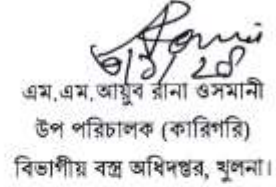 এম.এম.আয়ুব রানা ওসমানী
উপ পরিচালক (কারিগরি)
বিভাগীয় বস্ত্র অধিদপ্তর, খুলনা।